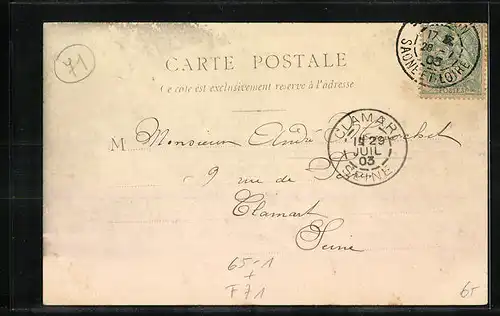 71
CARTE POSTALE
Ce côté est exclusivement réservé à l'adresse
17
28
03
SAONE ET LOIRE
CLAMART
29
JUIL
03
SEINE
M Monsieur André
9 rue de
Clamart
Seine
65-1
+
F71
65